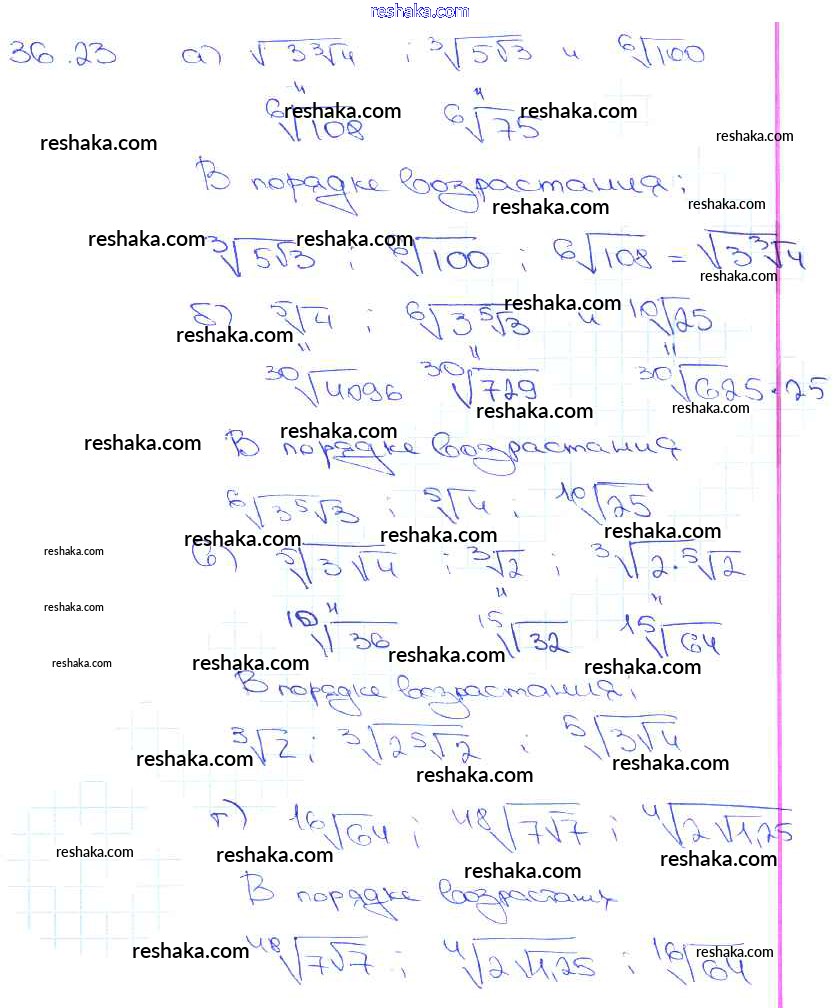 reshaka.com
36.23 а) √(3∛4) ; ∛(5√3) и ⁶√100
" "
⁶√108 ⁶√75
reshaka.com reshaka.com
reshaka.com reshaka.com
В порядке возрастания:
reshaka.com reshaka.com
reshaka.com reshaka.com
∛(5√3) ; ⁶√100 ; ⁶√108 = √(3∛4)
reshaka.com
reshaka.com
б) ⁵√4 ; ⁶√(3⁵√3) и ¹⁰√25
reshaka.com
" " "
³⁰√4096 ³⁰√729 ³⁰√625·25
reshaka.com reshaka.com
reshaka.com reshaka.com
В порядке возрастания
⁶√(3⁵√3) ; ⁵√4 ; ¹⁰√25
reshaka.com reshaka.com reshaka.com
reshaka.com
в) ⁵√(3√4) ; ∛2 ; ∛(2·⁵√2)
" " "
reshaka.com
¹⁰√36 ¹⁵√32 ¹⁵√64
reshaka.com reshaka.com reshaka.com reshaka.com
В порядке возрастания:
∛2 ; ∛(2⁵√2) ; ⁵√(3√4)
reshaka.com reshaka.com reshaka.com
г) ¹⁶√64 ; ⁴⁸√(7√7) ; ⁴√(2√1,25)
reshaka.com reshaka.com reshaka.com
reshaka.com
В порядке возрастания
reshaka.com
⁴⁸√(7√7) ; ⁴√(2√1,25) ; ¹⁶√64
reshaka.com reshaka.com
reshaka.com